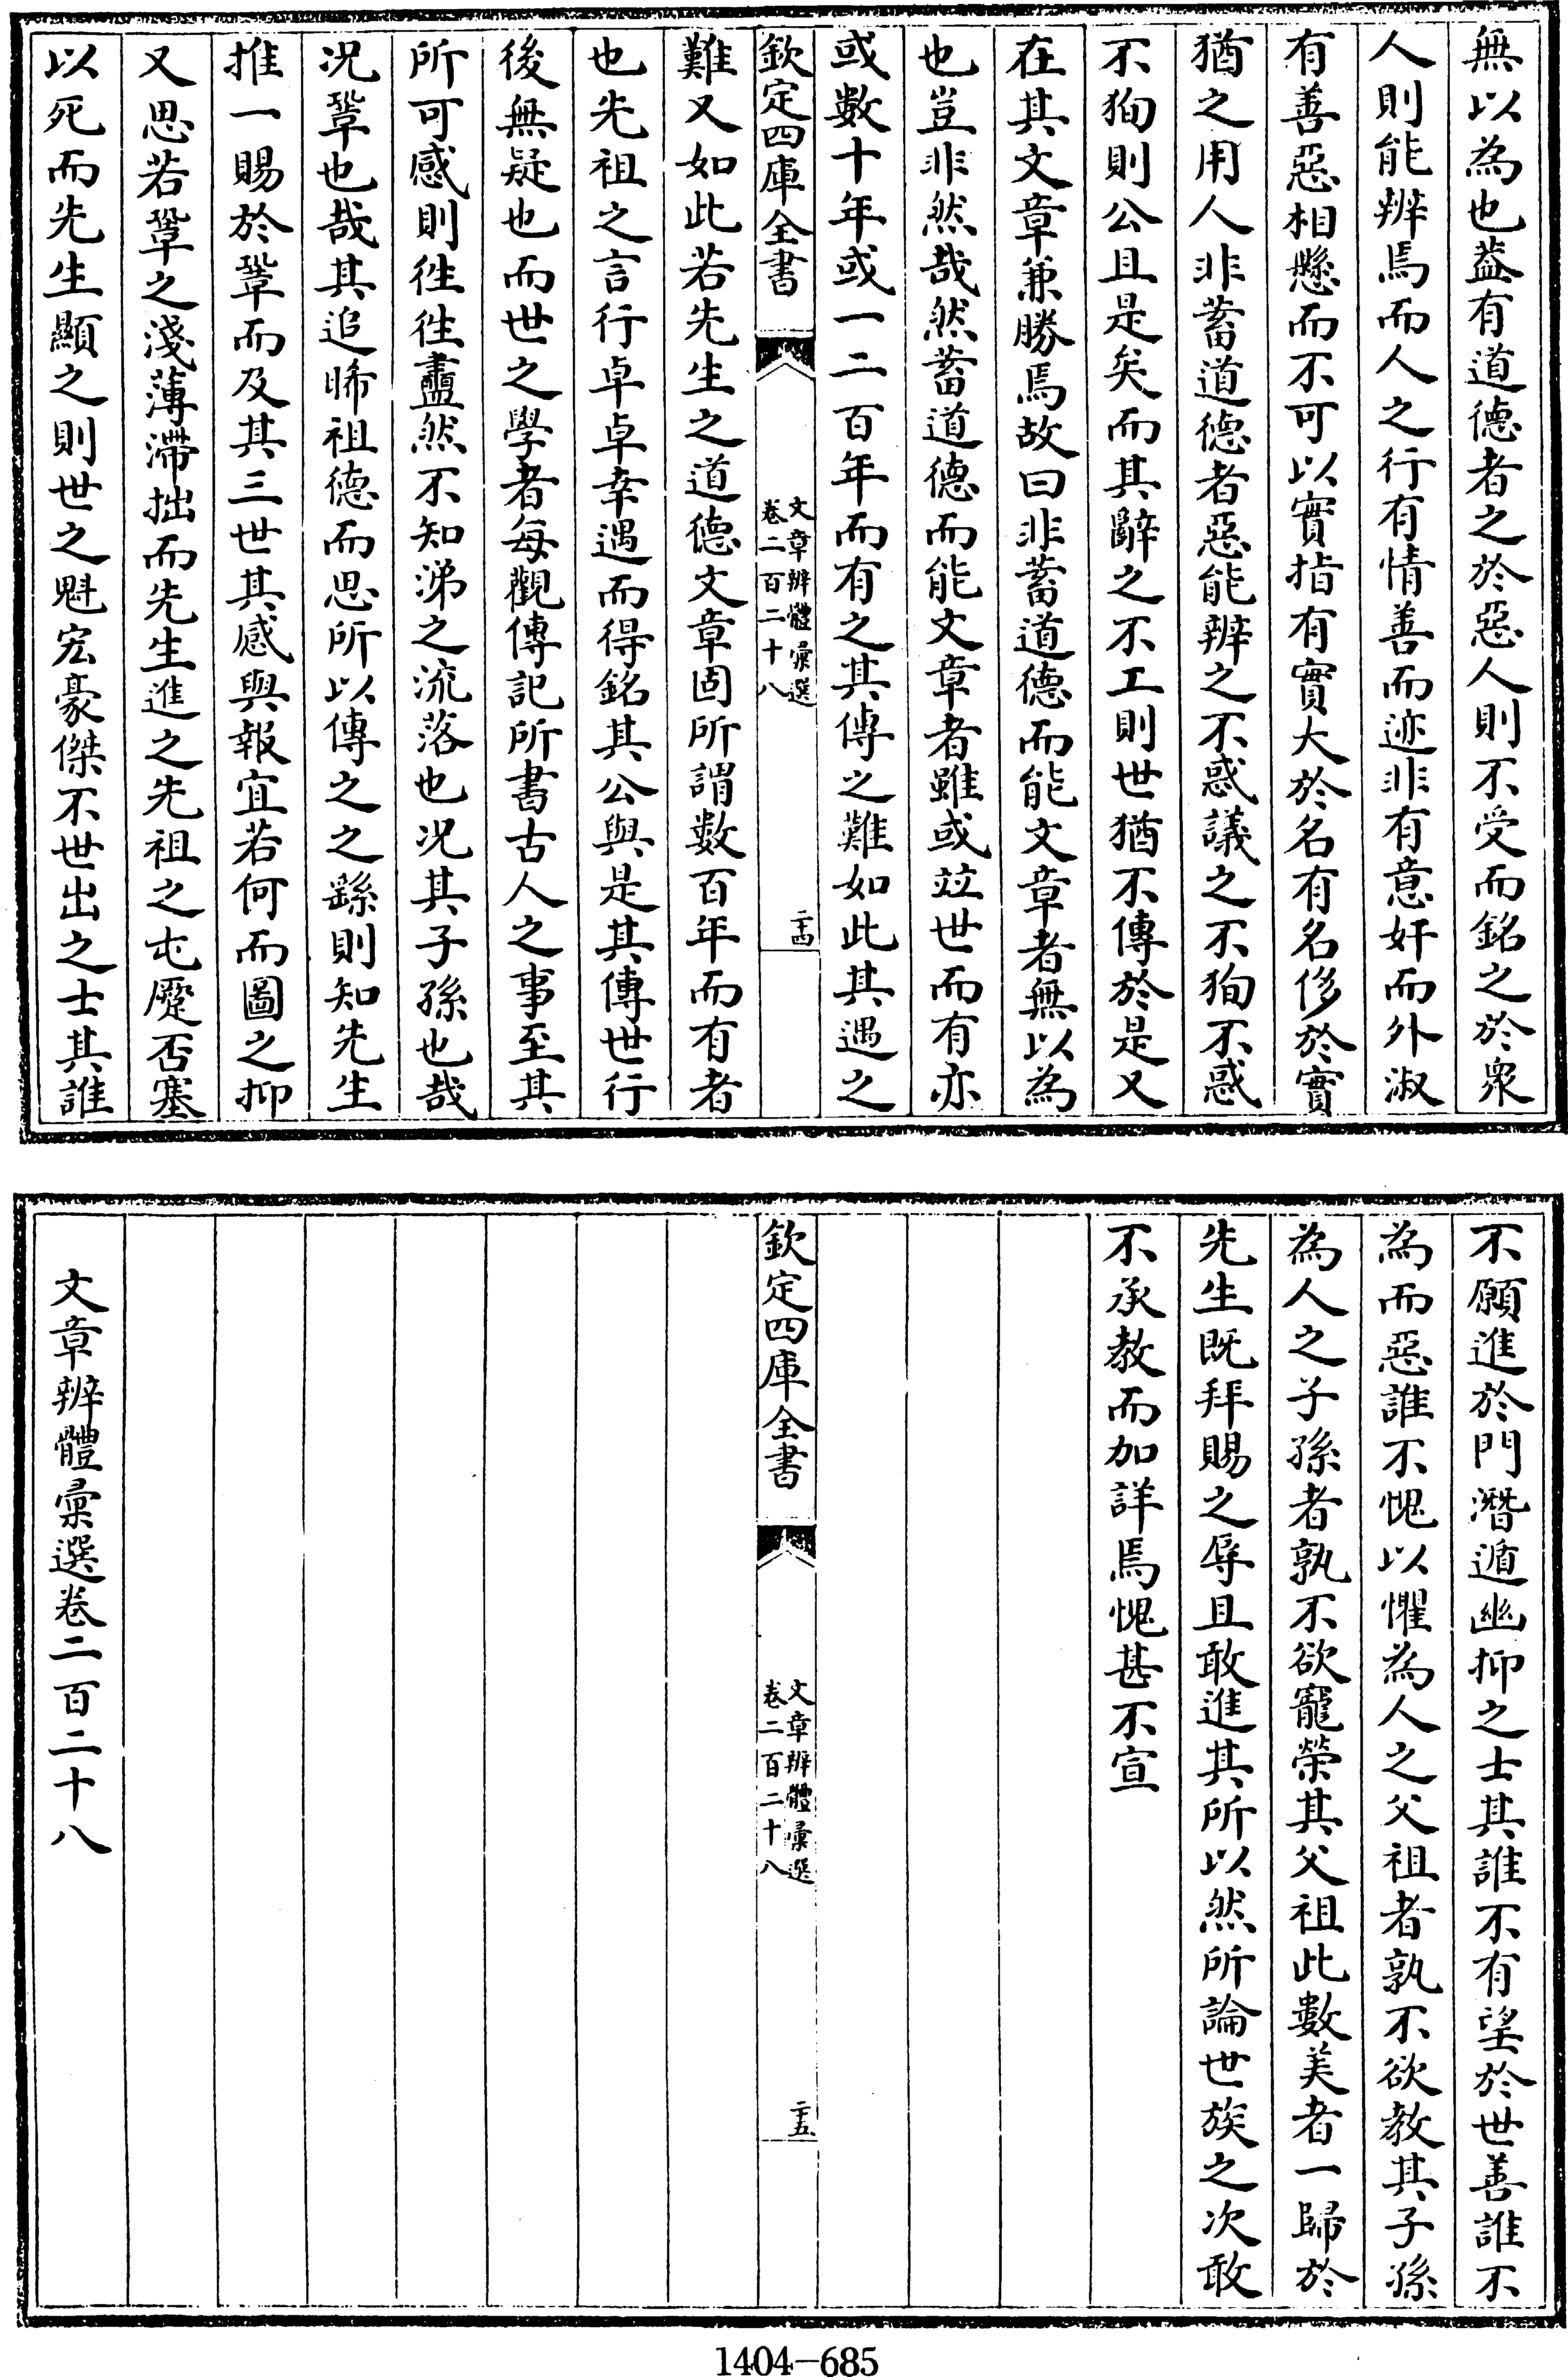 無以為也葢有道德者之於惡人則不受而銘之於衆
人則能辨焉而人之行有情善而迹非有意奸而外淑
有善惡相懸而不可以實指有實大於名有名侈於實
猶之用人非蓄道德者惡能辨之不惑議之不狥不惑
不狥則公且是矣而其辭之不工則世猶不傳於是又
在其文章兼勝焉故曰非蓄道德而能文章者無以為
也豈非然哉然蓄道德而能文章者雖或竝世而有亦
或數十年或一二百年而有之其傳之難如此其遇之
欽定四庫全書
文章辨體彙選
卷二百二十八
二十四
難又如此若先生之道德文章固所謂數百年而有者
也先祖之言行卓卓幸遇而得銘其公與是其傳世行
後無疑也而世之學者每觀傳記所書古人之事至其
所可感則徃徃衋然不知涕之流落也况其子孫也哉
况鞏也哉其追晞祖德而思所以傳之之繇則知先生
推一賜於鞏而及其三世其感與報宜若何而圖之抑
又思若鞏之淺薄滯拙而先生進之先祖之屯蹷否塞
以死而先生顯之則世之魁宏豪傑不世出之士其誰
不願進於門潛遁幽抑之士其誰不有望於世善誰不
為而惡誰不愧以懼為人之父祖者孰不欲教其子孫
為人之子孫者孰不欲寵榮其父祖此數美者一歸於
先生既拜賜之辱且敢進其所以然所論世族之次敢
不承教而加詳焉愧甚不宣
欽定四庫全書
文章辨體彙選
卷二百二十八
二十五
文章辨體彙選卷二百二十八
1404-685